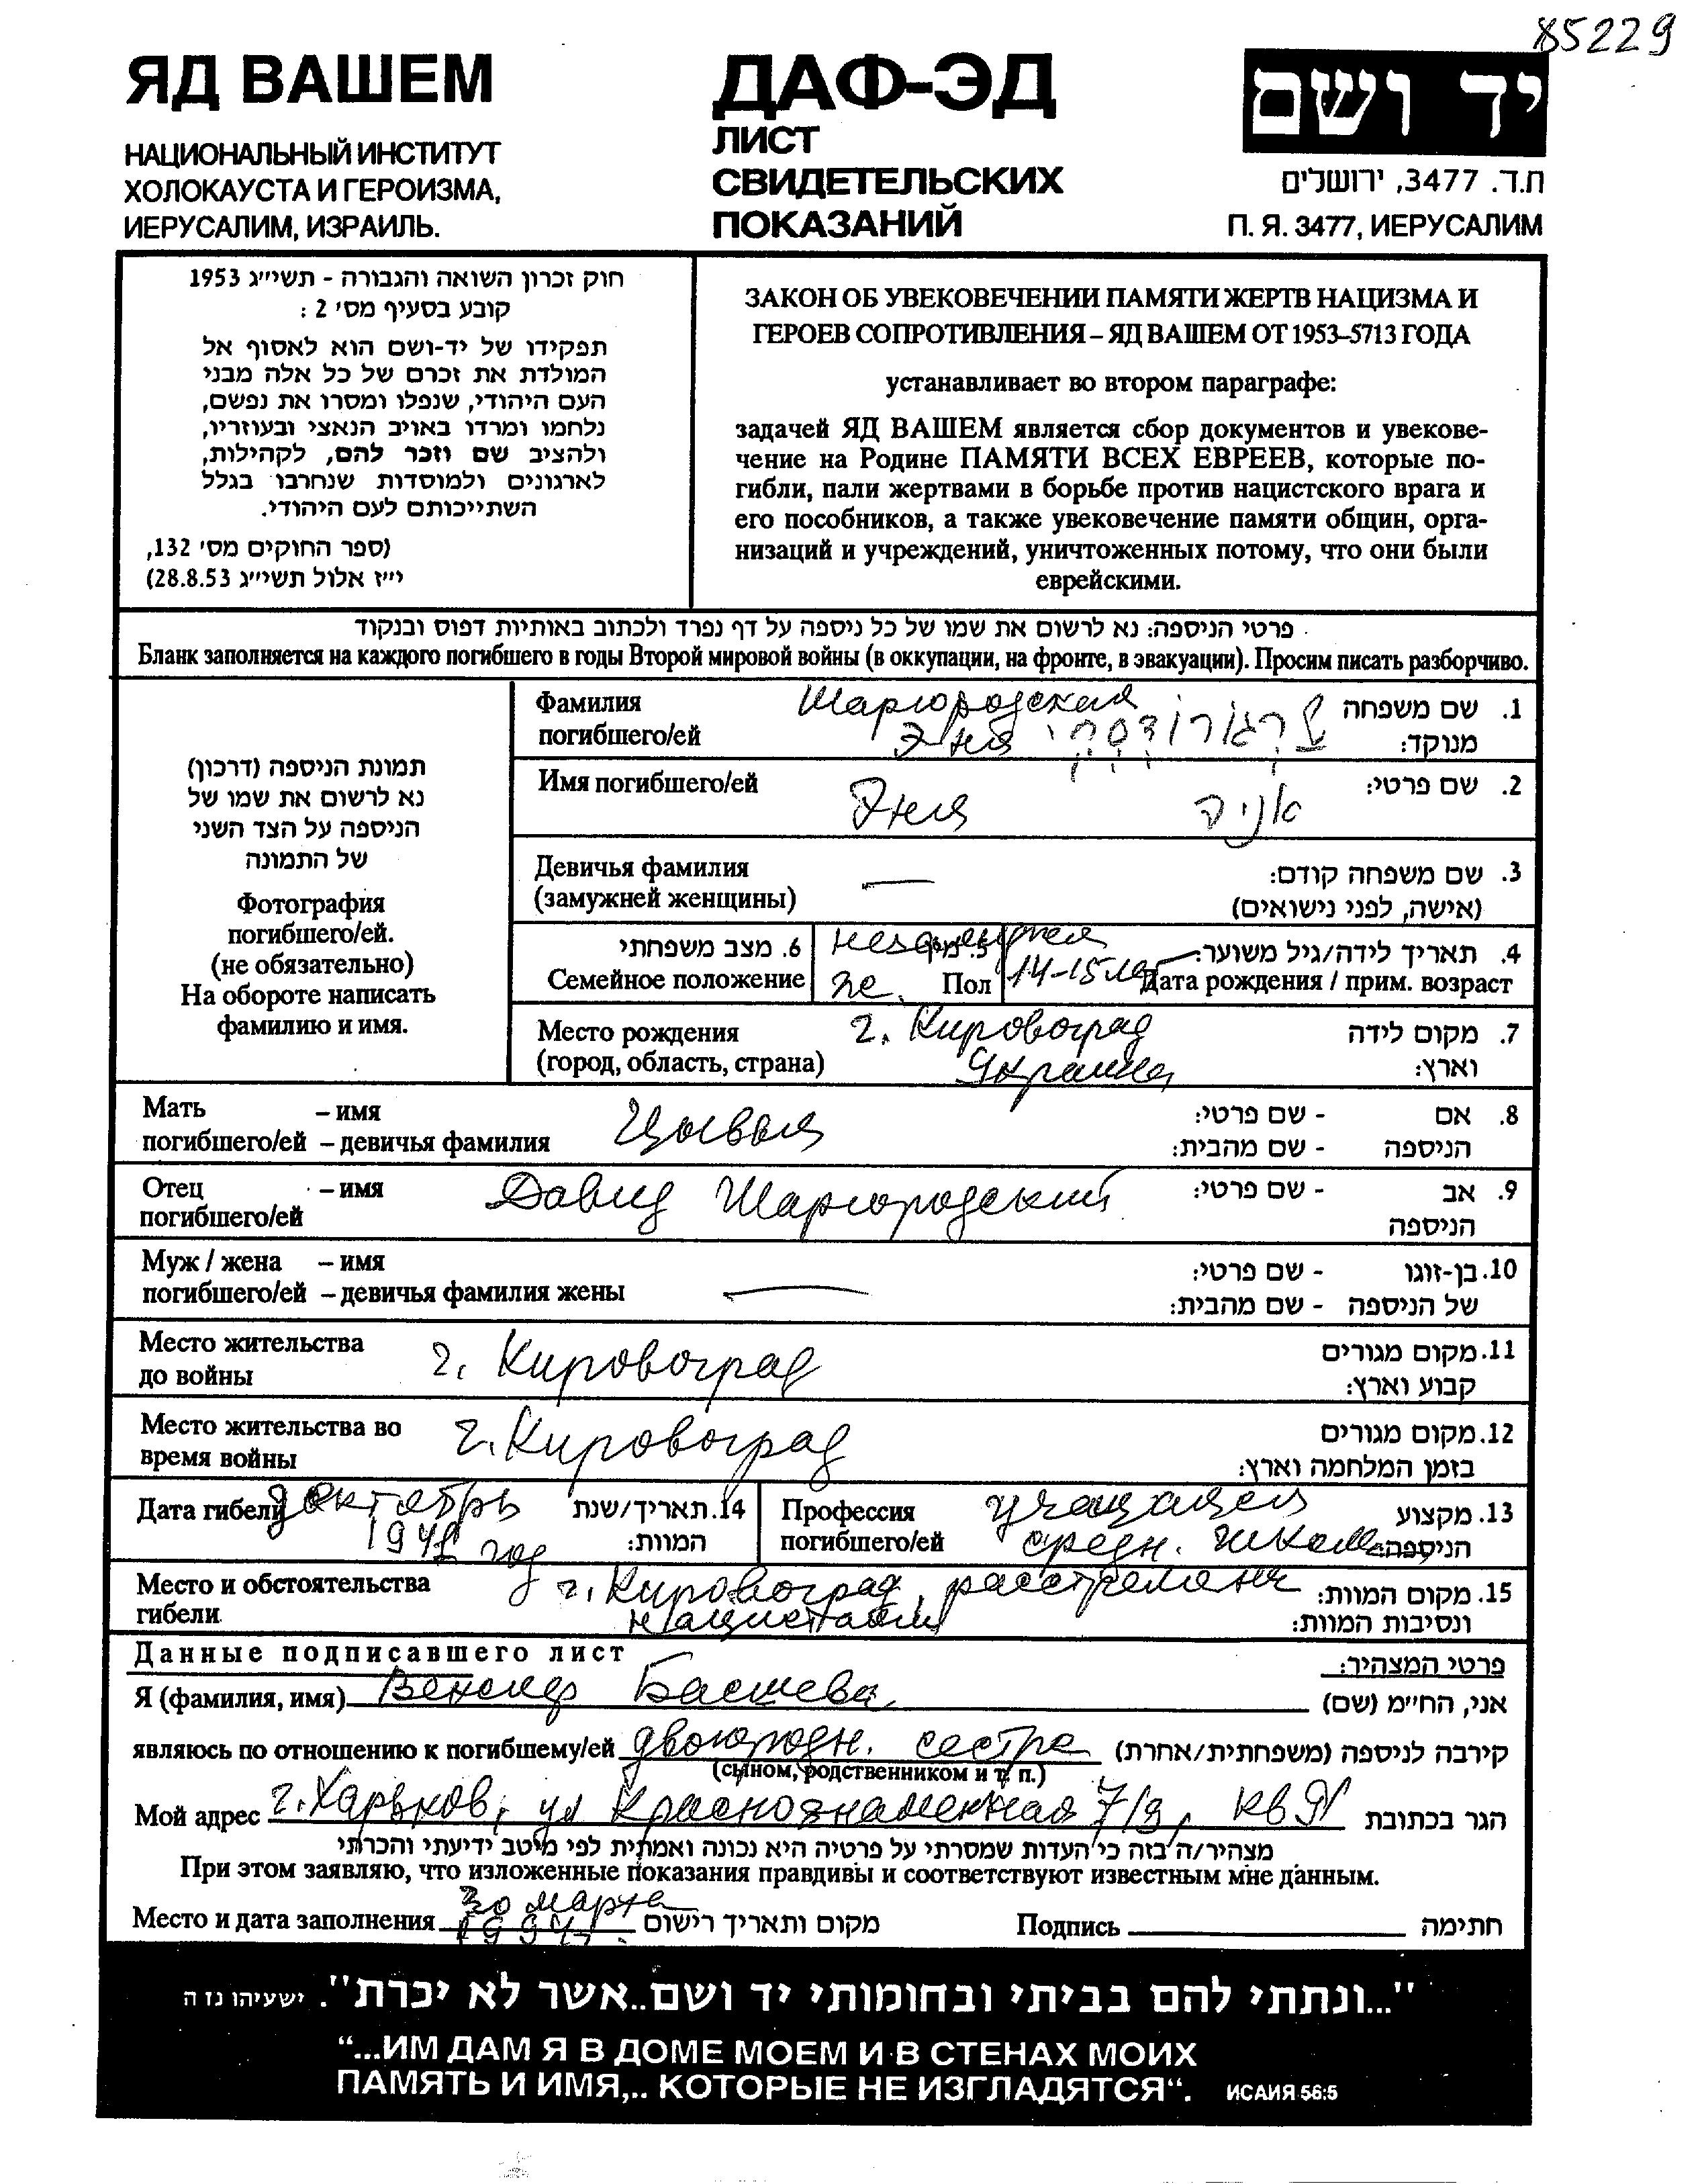 85229
ЯД ВАШЕМ
НАЦИОНАЛЬНЫЙ ИНСТИТУТ
ХОЛОКАУСТА И ГЕРОИЗМА,
ИЕРУСАЛИМ, ИЗРАИЛЬ.
ДАФ-ЭД
ЛИСТ
СВИДЕТЕЛЬСКИХ
ПОКАЗАНИЙ
יד ושם
ת.ד. 3477, ירושלים
П. Я. 3477, ИЕРУСАЛИМ
חוק זכרון השואה והגבורה - תשי״ג 1953
קובע בסעיף מס׳ 2 :
תפקידו של יד-ושם הוא לאסוף אל
המולדת את זכרם של כל אלה מבני
העם היהודי, שנפלו ומסרו את נפשם,
נלחמו ומרדו באויב הנאצי ובעוזריו,
ולהציב שם וזכר להם, לקהילות,
לארגונים ולמוסדות שנחרבו בגלל
השתייכותם לעם היהודי.
(ספר החוקים מס׳ 132,
י״ז אלול תשי״ג 28.8.53)
ЗАКОН ОБ УВЕКОВЕЧЕНИИ ПАМЯТИ ЖЕРТВ НАЦИЗМА И
ГЕРОЕВ СОПРОТИВЛЕНИЯ – ЯД ВАШЕМ ОТ 1953–5713 ГОДА
устанавливает во втором параграфе:
задачей ЯД ВАШЕМ является сбор документов и увекове-
чение на Родине ПАМЯТИ ВСЕХ ЕВРЕЕВ, которые по-
гибли, пали жертвами в борьбе против нацистского врага и
его пособников, а также увековечение памяти общин, орга-
низаций и учреждений, уничтоженных потому, что они были
еврейскими.
פרטי הניספה: נא לרשום את שמו של כל ניספה על דף נפרד ולכתוב באותיות דפוס ובנקוד
Бланк заполняется на каждого погибшего в годы Второй мировой войны (в оккупации, на фронте, в эвакуации). Просим писать разборчиво.
תמונת הניספה (דרכון)
נא לרשום את שמו של
הניספה על הצד השני
של התמונה
Фотография
погибшего/ей.
(не обязательно)
На обороте написать
фамилию и имя.
Фамилия Шаргородская 1. שם משפחה
погибшего/ей Эня שרגורודסקי מנוקד:
Имя погибшего/ей Эня אניה 2. שם פרטי:
Девичья фамилия — 3. שם משפחה קודם:
(замужней женщины) (אישה, לפני נישואים)
6. מצב משפחתי 5. מין 4. תאריך לידה/גיל משוער:
Семейное положение же. Пол 14-15 лет Дата рождения / прим. возраст
Место рождения г. Кировоград 7. מקום לידה
(город, область, страна) Украина וארץ:
Мать – имя Цывья 8. אם - שם פרטי:
погибшего/ей – девичья фамилия הניספה - שם מהבית:
Отец – имя Давид Шаргородский 9. אב - שם פרטי:
погибшего/ей הניספה
Муж / жена – имя — 10. בן-זוגו - שם פרטי:
погибшего/ей – девичья фамилия жены של הניספה - שם מהבית:
Место жительства г. Кировоград 11. מקום מגורים
до войны קבוע וארץ:
Место жительства во г. Кировоград 12. מקום מגורים
время войны בזמן המלחמה וארץ:
Дата гибели октябрь 14. תאריך/שנת Профессия учащаяся 13. מקצוע
1941 год המוות: погибшего/ей средн. школы הניספה:
Место и обстоятельства г. Кировоград, расстреляна 15. מקום המוות:
гибели нацистами ונסיבות המוות:
Данные подписавшего лист פרטי המצהיר:
Я (фамилия, имя) Башева אני, הח״מ (שם)
являюсь по отношению к погибшему/ей двоюродн. сестра קירבה לניספה (משפחתית/אחרת)
(сыном, родственником и т. п.)
Мой адрес г. Харьков, ул Краснознаменная 7/9, кв הגר בכתובת
מצהיר/ה בזה כי העדות שמסרתי על פרטיה היא נכונה ואמתית לפי מיטב ידיעתי והכרתי
При этом заявляю, что изложенные показания правдивы и соответствуют известным мне данным.
Место и дата заполнения 30 марта 1994г. מקום ותאריך רישום Подпись חתימה
"...ונתתי להם בביתי ובחומותי יד ושם..אשר לא יכרת". ישעיהו נז ה
“...ИМ ДАМ Я В ДОМЕ МОЕМ И В СТЕНАХ МОИХ
ПАМЯТЬ И ИМЯ,.. КОТОРЫЕ НЕ ИЗГЛАДЯТСЯ“. ИСАИЯ 56:5